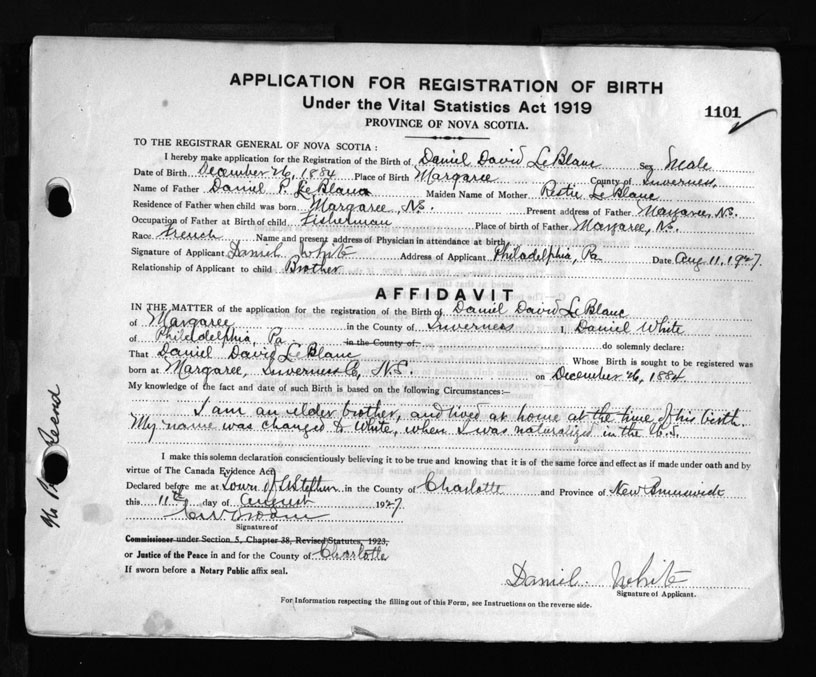 APPLICATION FOR REGISTRATION OF BIRTH
Under the Vital Statistics Act 1919
1101
PROVINCE OF NOVA SCOTIA.
TO THE REGISTRAR GENERAL OF NOVA SCOTIA:
I hereby make application for the Registration of the Birth of Daniel David LeBlanc Sex Male
Date of Birth December 26, 1884 Place of Birth Margaree County of Inverness
Name of Father Daniel P. LeBlanc Maiden Name of Mother LeBlanc
Residence of Father when child was born Margaree, N.S. Present address of Father Margaree, N.S.
Occupation of Father at Birth of child Fisherman Place of birth of Father Margaree, N.S.
Race French Name and present address of Physician in attendance at birth
Signature of Applicant Daniel White Address of Applicant Philadelphia, Pa Date Aug 11, 1927.
Relationship of Applicant to child Brother
AFFIDAVIT
IN THE MATTER of the application for the registration of the Birth of Daniel David LeBlanc
of Margaree in the County of Inverness I, Daniel White
of Philadelphia, Pa. in the County of do solemnly declare:
That Daniel David LeBlanc Whose Birth is sought to be registered was
born at Margaree, Inverness Co, N.S. on December 26, 1884
My knowledge of the fact and date of such Birth is based on the following Circumstances:—
I am an elder brother, and lived at home at the time of his birth.
My name was changed to White, when I was naturalized in the U.S.
I make this solemn declaration conscientiously believing it to be true and knowing that it is of the same force and effect as if made under oath and by
virtue of The Canada Evidence Act
Declared before me at Town of St Stephen in the County of Charlotte and Province of New Brunswick
this 11th day of August 1927
Signature of
Commissioner under Section 5, Chapter 38, Revised Statutes, 1923,
or Justice of the Peace in and for the County of Charlotte
If sworn before a Notary Public affix seal.
Daniel White
Signature of Applicant.
For Information respecting the filling out of this Form, see Instructions on the reverse side.